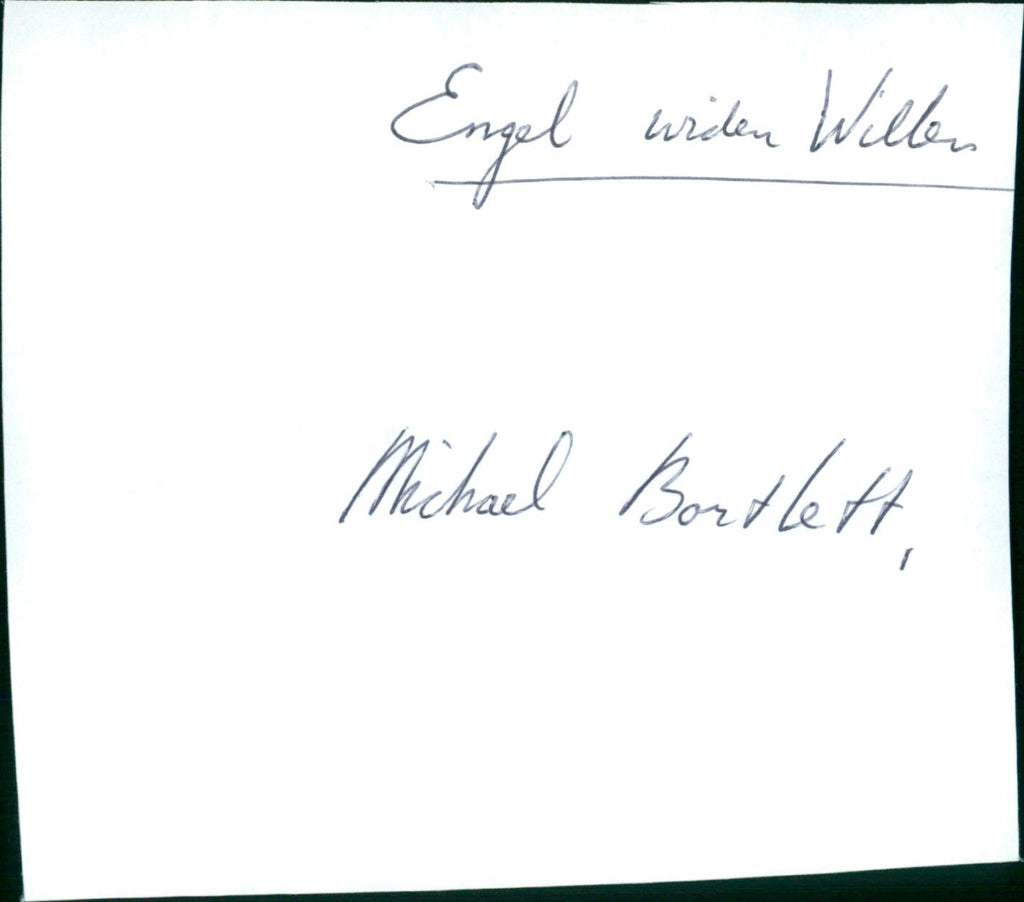 Engel wider Willen
Michael Bartlett,